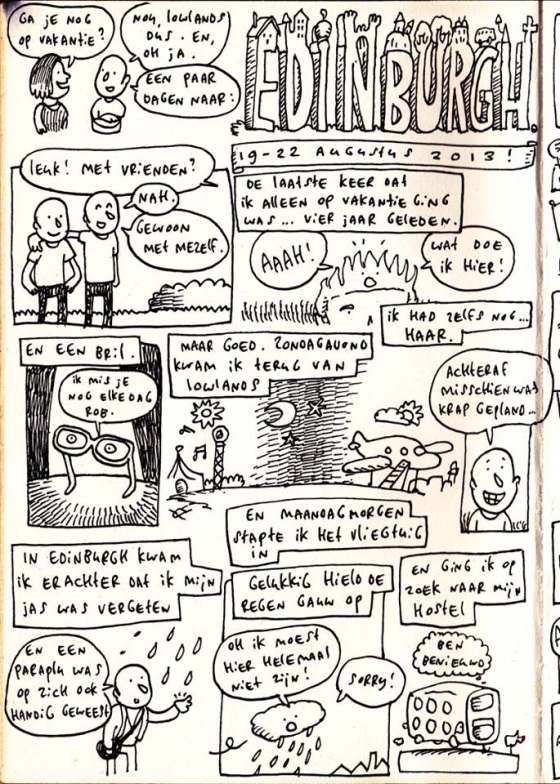 GA JE NOG
OP VAKANTIE?
NOU, LOWLANDS
DUS. EN,
OH JA.
EEN PAAR
DAGEN NAAR:
EDINBURGH.
19-22 AUGUSTUS 2013!
LEUK! MET VRIENDEN?
NAH.
GEWOON
MET MEZELF.
DE LAATSTE KEER DAT
IK ALLEEN OP VAKANTIE GING
WAS... VIER JAAR GELEDEN.
AAAH!
WAT DOE
IK HIER!
IK HAD ZELFS NOG...
HAAR.
EN EEN BRIL.
IK MIS JE
NOG ELKE DAG
ROB.
MAAR GOED. ZONDAGAVOND
KWAM IK TERUG VAN
LOWLANDS
ACHTERAF
MISSCHIEN WAT
KRAP GEPLAND...
EN MAANDAGMORGEN
STAPTE IK HET VLIEGTUIG
IN
IN EDINBURGH KWAM
IK ERACHTER DAT IK MIJN
JAS WAS VERGETEN
EN EEN
PARAPLU WAS
OP ZICH OOK
HANDIG GEWEEST
GELUKKIG HIELD DE
REGEN GAUW OP
OH IK MOEST
HIER HELEMAAL
NIET ZIJN!
SORRY!
EN GING IK OP
ZOEK NAAR MIJN
HOSTEL
BEN
BENIEUWD